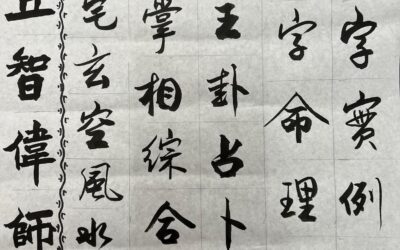 字實例
字命理
王卦占卜
掌相綜合
宅玄空風水
智偉師